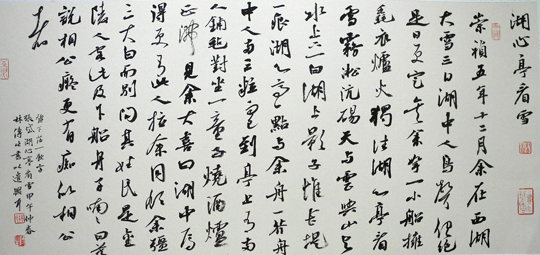 湖心亭看雪
崇禎五年十二月余在西湖
大雪三日湖中人鳥聲俱絕
是日更定矣余拏一小船擁
毳衣爐火獨往湖心亭看
雪霧淞沆碭天與雲與山與
水上下一白湖上影子惟長堤
一痕湖心亭一點與余舟一芥舟
中人兩三粒而已到亭上有兩
人鋪氈對坐一童子燒酒爐
正沸見余大喜曰湖中焉
得更有此人拉余同飲余强
三大白而別問其姓氏是金
陵人客此及下船舟子喃喃曰莫
說相公癡更有癡似相公
者
張岱湖心亭看雪甲午仲春